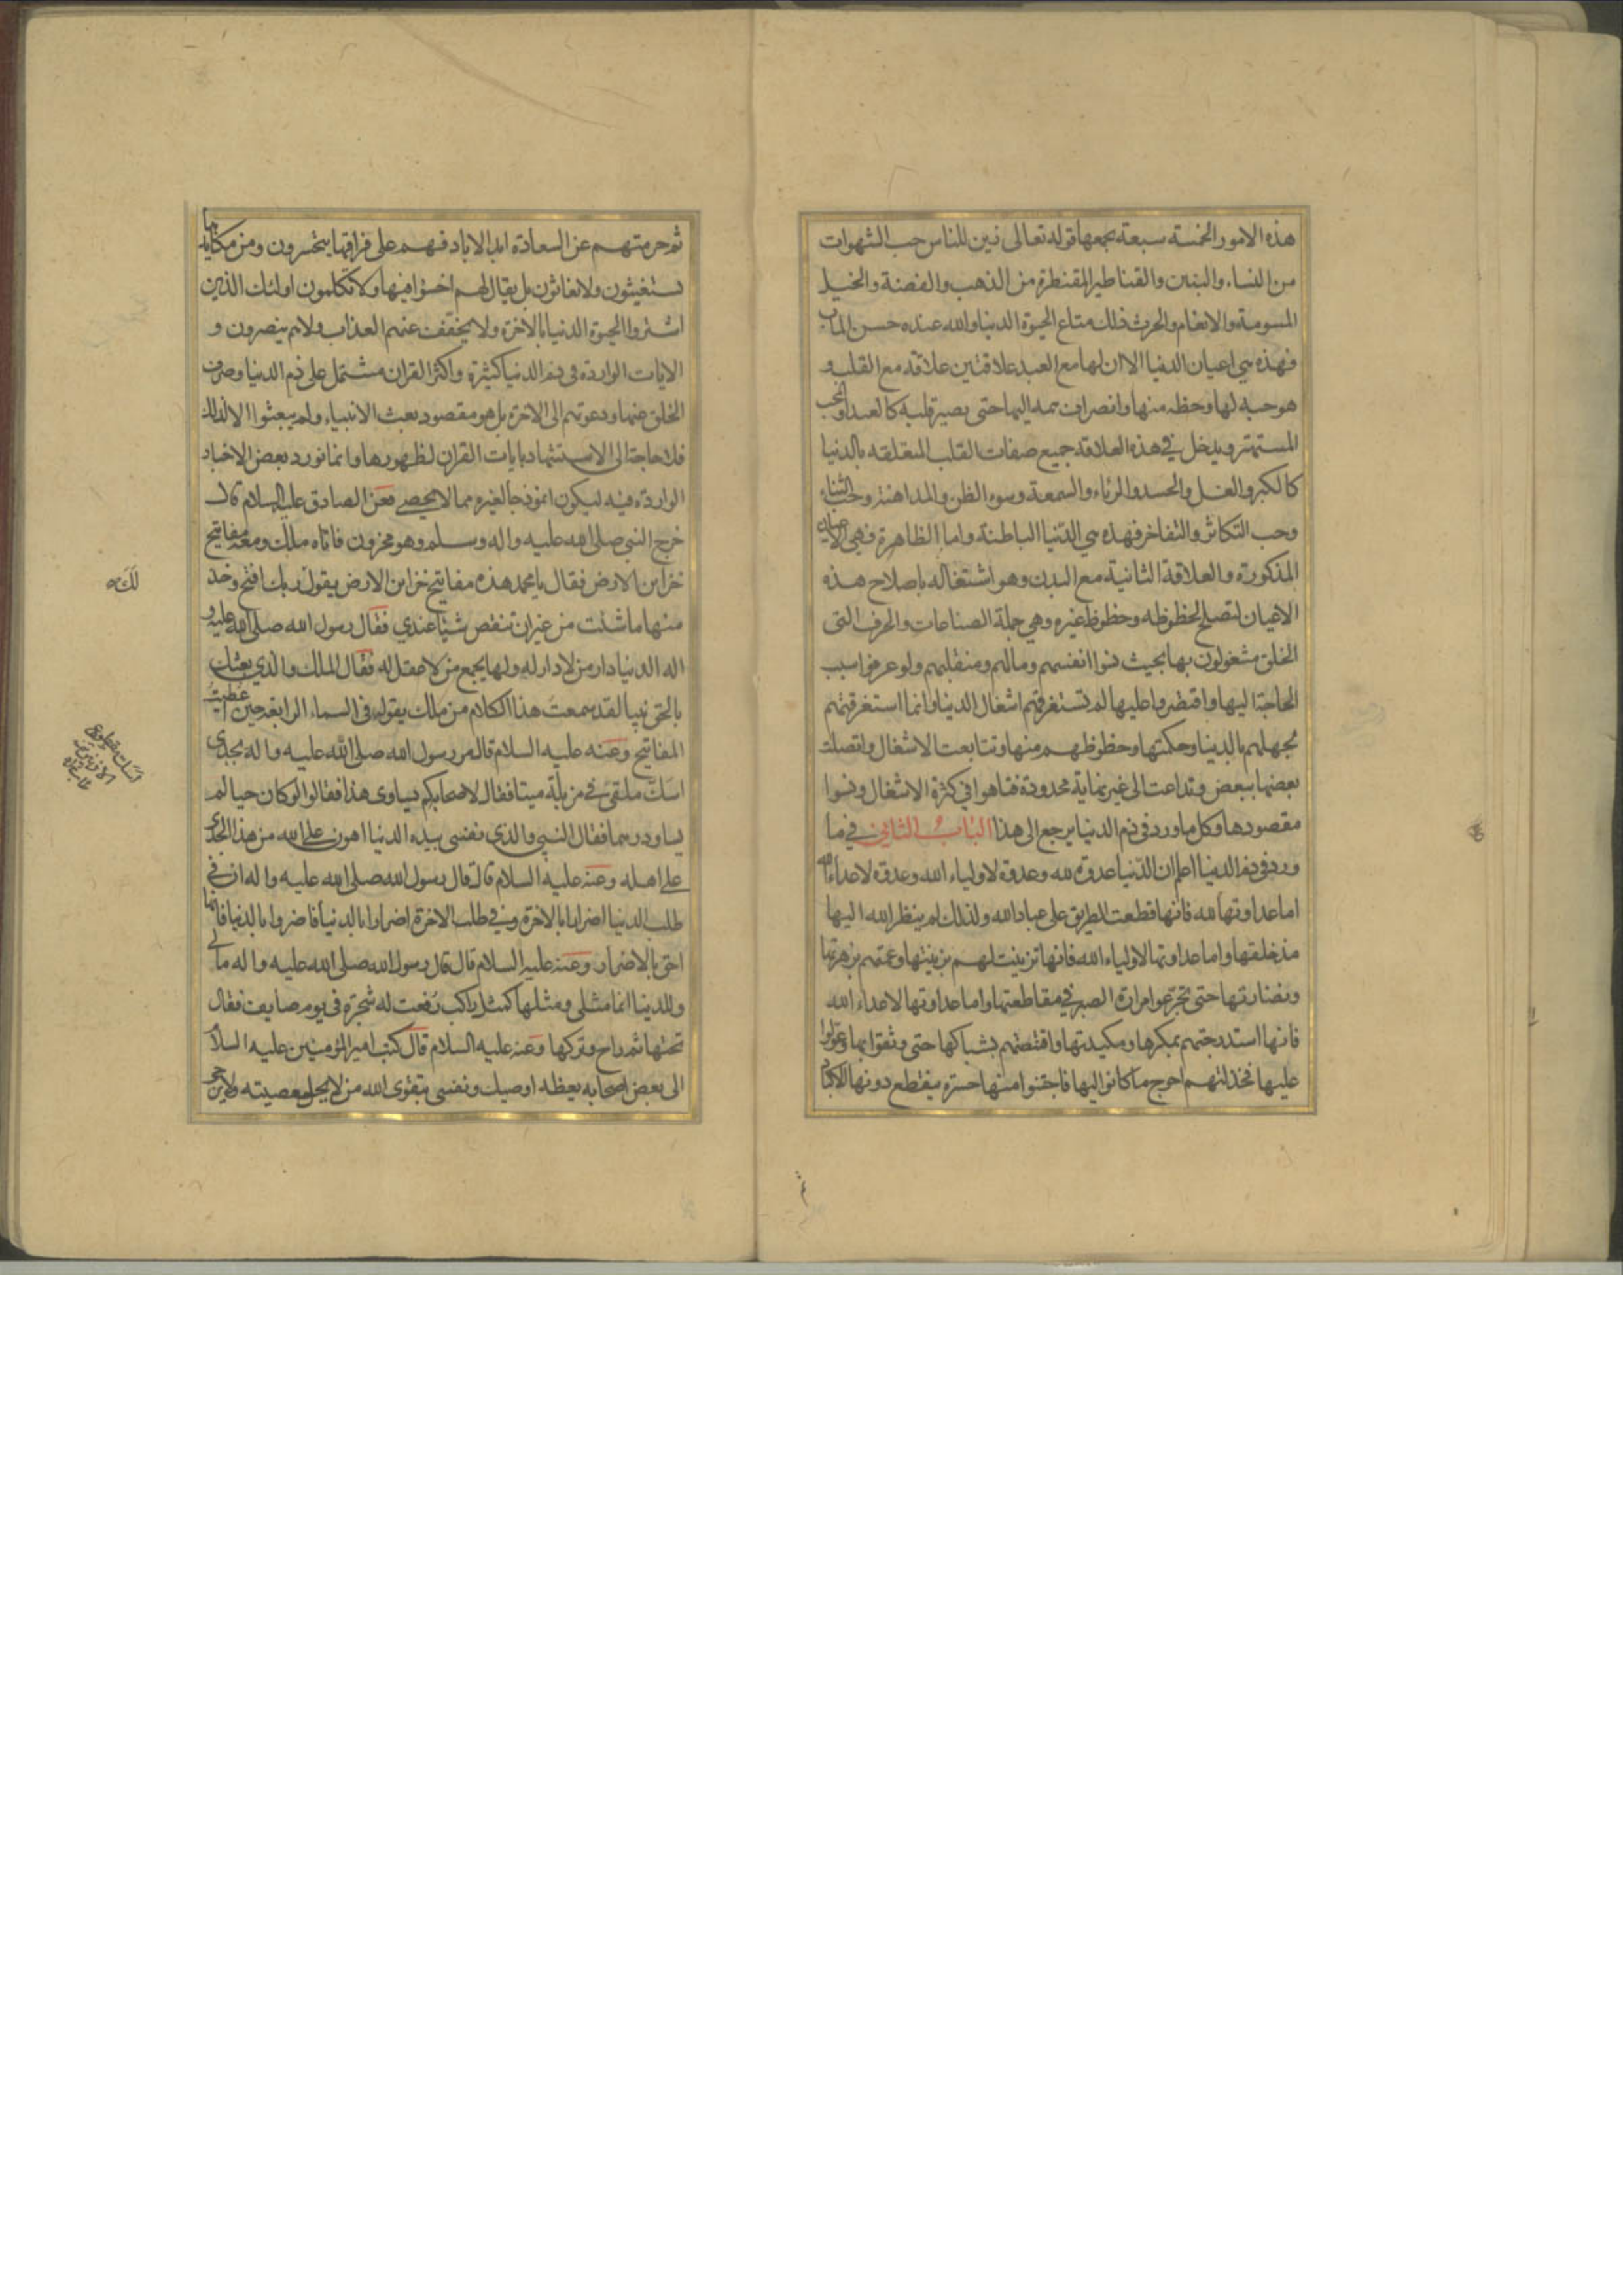 هذه الامور الخمسة سبعة يجمعها قوله تعالى زين للناس حب الشهوات
من النساء والبنين والقناطير المقنطرة من الذهب والفضة والخيل
المسومة والانعام والحرث ذلك متاع الحيوة الدنيا والله عنده حسن الماب
فهذه هي اعيان الدنيا الا ان لها مع العبد علاقتين علاقة مع القلب و
هو حبه لها وحظه منها وانصراف همه اليها حتى يصير قلبه كالعبد او المحب
المستهتر ويدخل في هذه العلاقة جميع صفات القلب المتعلقه بالدنيا
كالكبر والغل والحسد والرئاء والسمعة وسوء الظن والمداهنة وحب الثناء
وحب التكاثر والتفاخر فهذه هي الدنيا الباطنة واما الظاهرة فهي الاعيان
المذكورة والعلاقة الثانية مع البدن وهو اشتغاله باصلاح هذه
الاعيان لتصلح لحظوظه وحظوظ غيره وهي جملة الصناعات والحرف التي
الخلق مشغولون بها بحيث نسوا انفسهم ومالهم ومنقلبهم ولو عرفوا سبب
الحاجة اليها واقتصروا عليها لم تستغرقهم اشغال الدنيا وانما استغرقتهم
لجهلهم بالدنيا وحكمتها وحظوظهم منها وتتابعت الاشغال واتصلت
بعضها ببعض وتداعت الى غير نهاية محدودة فتاهوا في كثرة الاشغال ونسوا
مقصودها وكل ما ورد في ذم الدنيا يرجع الى هذا الباب الثاني في ما
ورد في ذم الدنيا اعلم ان الدنيا عدوة لله وعدوة لاولياء الله وعدوة لاعداء الله
اما عداوتها لله فانها قطعت الطريق على عباد الله ولذلك لم ينظر الله اليها
مذ خلقها واما عداوتها لاولياء الله فانها تزينت لهم بزينتها وعمتهم بزهرتها
ونضارتها حتى تجرعوا مرارة الصبر في مقاطعتها واما عداوتها لاعداء الله
فانها استدرجتهم بمكرها ومكيدتها واقتنصتهم بشباكها حتى وثقوا بها وعولوا
عليها فخذلتهم احوج ما كانوا اليها فاجتنوا منها حسرة ينقطع دونها الاكباد
ثم حرمتهم عن السعادة ابد الاباد فهم على فراقها يتحسرون ومن مكايدها
يستغيثون ولا يغاثون بل يقال لهم اخسؤا فيها ولا تكلمون اولئك الذين
اشتروا الحيوة الدنيا بالاخرة ولا يخفف عنهم العذاب ولا هم ينصرون و
الايات الواردة في ذم الدنيا كثيرة واكثر القران مشتمل على ذم الدنيا وصرف
الخلق عنها ودعوتهم الى الاخرة بل هو مقصود بعث الانبياء ولم يبعثوا الا لذلك
فلا حاجة الى الاستشهاد بايات القران لظهورها وانما نورد بعض الاخبار
الواردة فيه ليكون انموذجا لغيره مما لا يحصى فعن الصادق عليه السلام قال
خرج النبي صلى الله عليه واله وسلم وهو محزون فاتاه ملك ومعه مفاتيح
خزاين الارض فقال يا محمد هذه مفاتيح خزاين الارض يقول ربك افتح وخذ
منها ما شئت من غير ان تنقص شيئا عندي فقال رسول الله صلى الله عليه و
اله الدنيا دار من لا دار له ولها يجمع من لا عقل له فقال الملك والذي بعثك
بالحق نبيا لقد سمعت هذا الكلام من ملك يقوله في السماء الرابعة حين اعطيت
المفاتيح وعنه عليه السلام قال مر رسول الله صلى الله عليه واله بجدي
اسك ملقى في مزبلة ميتا فقال لاصحابه كم يساوى هذا فقالوا لو كان حيا لم
يساو درهما فقال النبي والذي نفسي بيده الدنيا اهون على الله من هذا الجدي
على اهله وعنه عليه السلام قال قال رسول الله صلى الله عليه واله ان في
طلب الدنيا اضرارا بالاخرة وفي طلب الاخرة اضرارا بالدنيا فاضروا بالدنيا فانها
احق بالاضرار وعنه عليه السلام قال قال رسول الله صلى الله عليه واله ما لي
وللدنيا انما مثلي ومثلها كمثل راكب رفعت له شجرة في يوم صايف فقال
تحتها ثم راح وتركها وعنه عليه السلام قال كتب امير المؤمنين عليه السلام
الى بعض اصحابه يعظه اوصيك ونفسي بتقوى الله من لا يحل معصيته ولا يرجى
لك